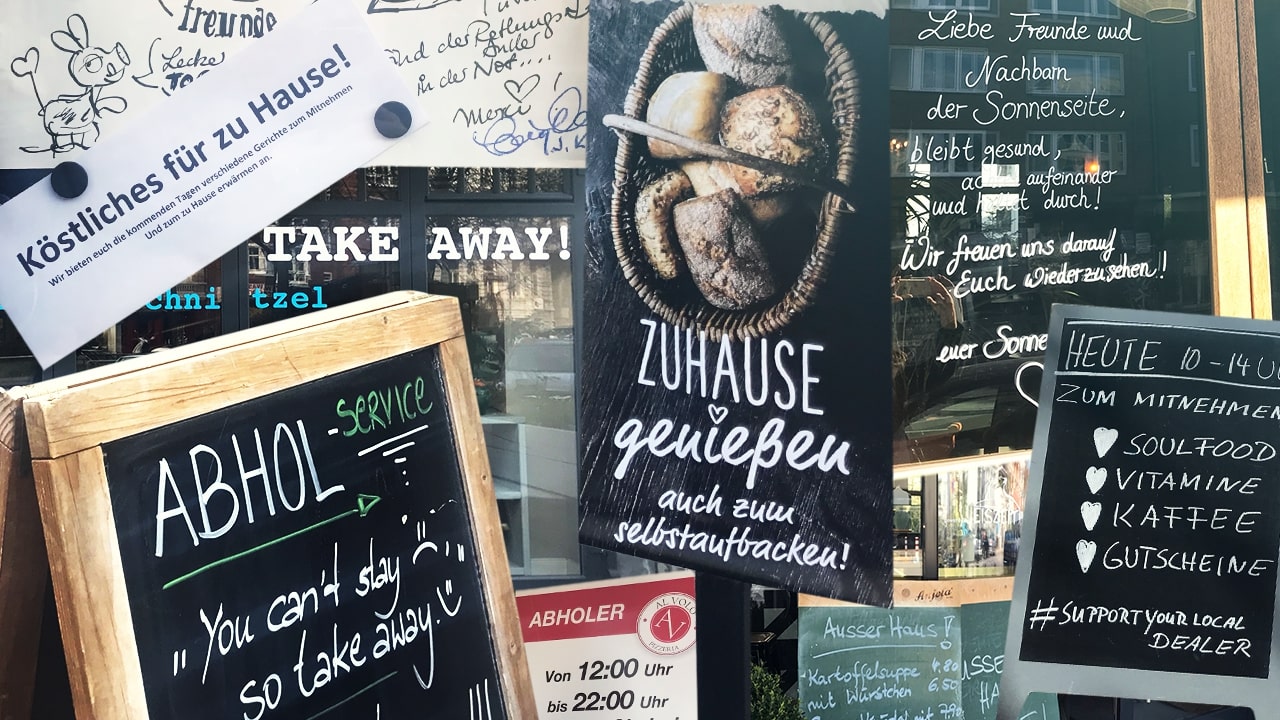 freunde
Lecke
und der Rettungs
in der Not....
Merci
Köstliches für zu Hause!
Wir bieten euch die kommenden Tagen verschiedene Gerichte zum Mitnehmen
Und zum zu Hause erwärmen an.
TAKE AWAY!
chni tzel
ABHOL-SERVICE
"You can't stay
so take away."
!!!
ZUHAUSE
genießen
auch zum
selbstaufbacken!
ABHOLER
AL VOLO
AV
PIZZERIA
Von 12:00 Uhr
bis 22:00 Uhr
Liebe Freunde und
Nachbarn
der Sonnenseite,
bleibt gesund,
aufeinander
und durch!
Wir freuen uns darauf
Euch wiederzusehen!
euer Sonne
Ausser Haus!
Kartoffelsuppe 4.80
mit Würstchen 6,50
mit 7.90
HEUTE 10-14 U
ZUM MITNEHMEN
SOULFOOD
VITAMINE
KAFFEE
GUTSCHEINE
#SUPPORT YOUR LOCAL
DEALER